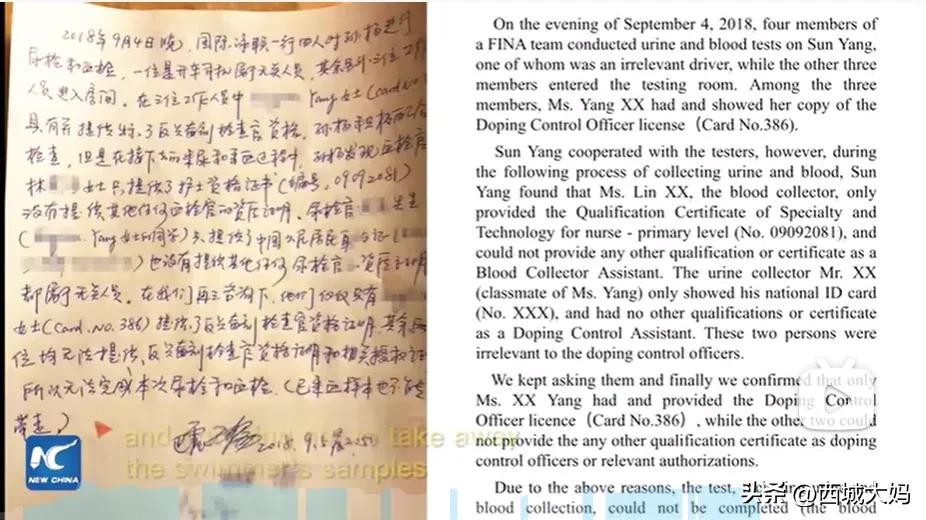 2018年9月4日晚,国际泳联一行四人对孙杨进行
尿检和血检,一位是开车司机属于无关人员,其余另外三位工作
人员进入房间。在三位工作人员中 Yang女士(card No
具有并提供了反兴奋剂检查官资格,孙杨积极配合
检查,但是在接下来的采尿和采血过程中,孙杨发现血检官
林 女士只提供了护士资格证书(编号:09092081)
没有提供其他任何血检官的资质证明。尿检官 先生
( Yang女士的同学)只提供了中国公民居民身份证(
)也没有提供其他任何尿检官资质证明
都属于无关人员。在我们再三咨询下,他们仅仅只有
女士(Card.No.386)提供了反兴奋剂检查官资格证明,其余两
位均无法提供反兴奋剂检查官资格证明和相关授权证
所以无法完成本次尿检和血检。(已采血样本也不能
带走)
2018.9.5晨
and to take away
the swimmer's samples
NC
NEW CHINA
On the evening of September 4, 2018, four members of
a FINA team conducted urine and blood tests on Sun Yang,
one of whom was an irrelevant driver, while the other three
members entered the testing room. Among the three
members, Ms. Yang XX had and showed her copy of the
Doping Control Officer license (Card No.386).
Sun Yang cooperated with the testers, however, during
the following process of collecting urine and blood, Sun
Yang found that Ms. Lin XX, the blood collector, only
provided the Qualification Certificate of Specialty and
Technology for nurse - primary level (No. 09092081), and
could not provide any other qualification or certificate as a
Blood Collector Assistant. The urine collector Mr. XX
(classmate of Ms. Yang) only showed his national ID card
(No. XXX), and had no other qualifications or certificate
as a Doping Control Assistant. These two persons were
irrelevant to the doping control officers.
We kept asking them and finally we confirmed that only
Ms. XX Yang had and provided the Doping Control
Officer licence (Card No.386) , while the other two could
not provide the any other qualification certificate as doping
control officers or relevant authorizations.
Due to the above reasons, the test,
blood collection, could not be completed (the blood
头条 @西城大妈